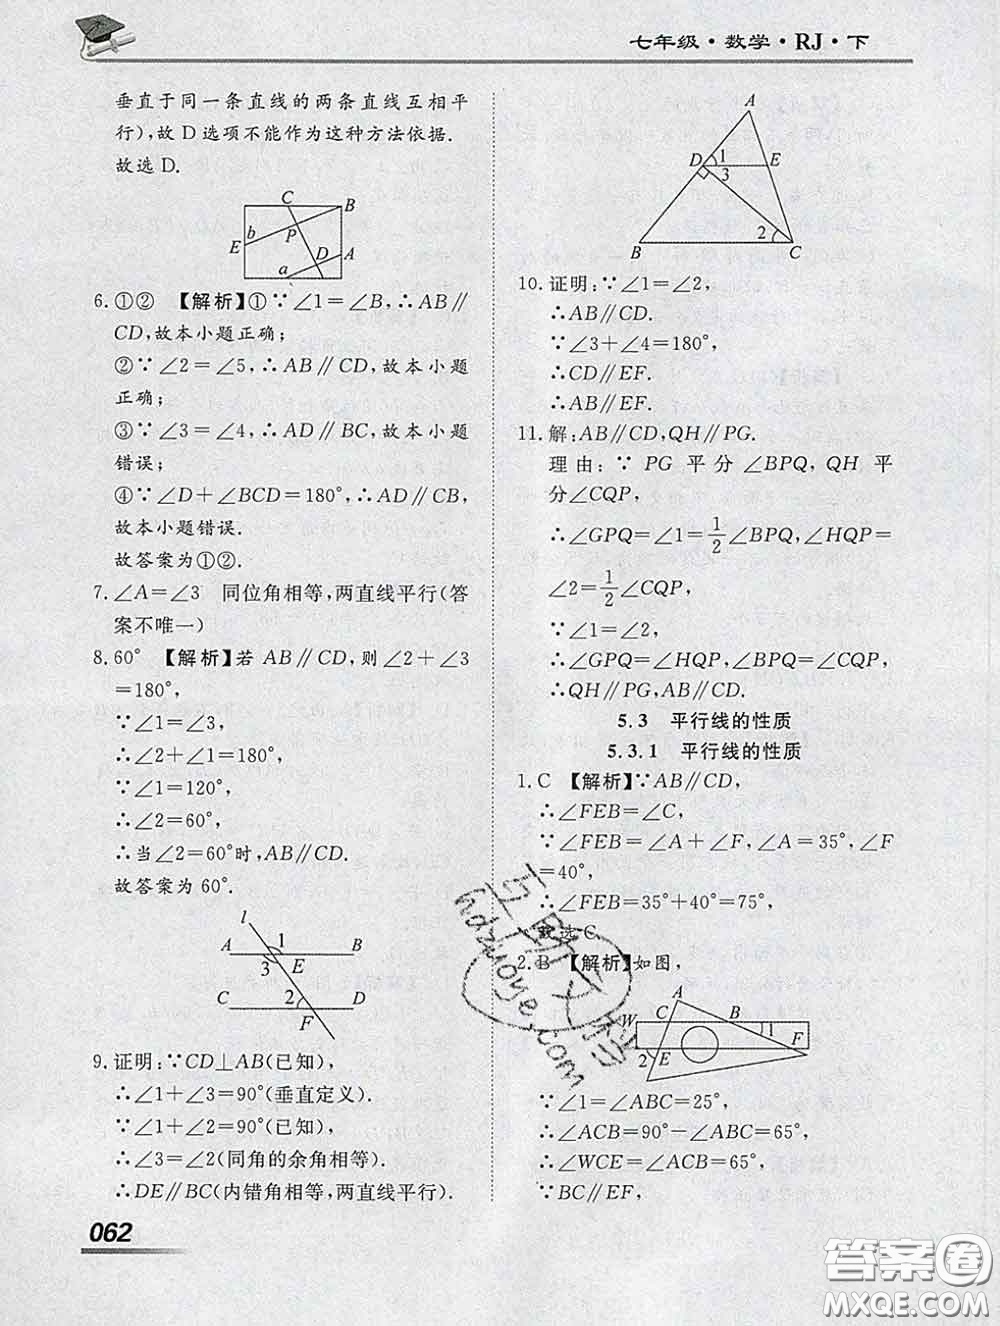 七年级·数学·RJ·下
垂直于同一条直线的两条直线互相平
行),故 D 选项不能作为这种方法依据.
故选 D.
C
B
E
b
P
D
A
a
6.①② 【解析】①∵∠1=∠B,∴AB∥
CD,故本小题正确;
②∵∠2=∠5,∴AB∥CD,故本小题
正确;
③∵∠3=∠4,∴AD∥BC,故本小题
错误;
④∵∠D+∠BCD=180°,∴AD∥CB,
故本小题错误.
故答案为①②.
7.∠A=∠3 同位角相等,两直线平行(答
案不唯一)
8.60° 【解析】若 AB∥CD,则∠2+∠3
=180°,
∵∠1=∠3,
∴∠2+∠1=180°,
∵∠1=120°,
∴∠2=60°,
∴当∠2=60°时,AB∥CD.
故答案为 60°.
l
A
1
B
3
E
C
2
D
F
9.证明:∵CD⊥AB(已知),
∴∠1+∠3=90°(垂直定义).
∵∠1+∠2=90°(已知),
∴∠3=∠2(同角的余角相等).
∴DE∥BC(内错角相等,两直线平行).
A
D
1
E
3
2
B
C
10.证明:∵∠1=∠2,
∴AB∥CD.
∵∠3+∠4=180°,
∴CD∥EF.
∴AB∥EF.
11.解:AB∥CD,QH∥PG.
理由:∵ PG 平分∠BPQ, QH 平
分∠CQP,
∴∠GPQ=∠1=1/2∠BPQ,∠HQP=
∠2=1/2∠CQP,
∵∠1=∠2,
∴∠GPQ=∠HQP,∠BPQ=∠CQP,
∴QH∥PG,AB∥CD.
5.3 平行线的性质
5.3.1 平行线的性质
1.C 【解析】∵AB∥CD,
∴∠FEB=∠C,
∵∠FEB=∠A+∠F,∠A=35°,∠F
=40°,
∴∠FEB=35°+40°=75°,
故选 C.
2.B 【解析】如图,
A
W
C
B
1
F
2
E
∵∠1=∠ABC=25°,
∴∠ACB=90°-∠ABC=65°,
∴∠WCE=∠ACB=65°,
∵BC∥EF,
062
hdzuoye.com
答案圈
MXQE.COM